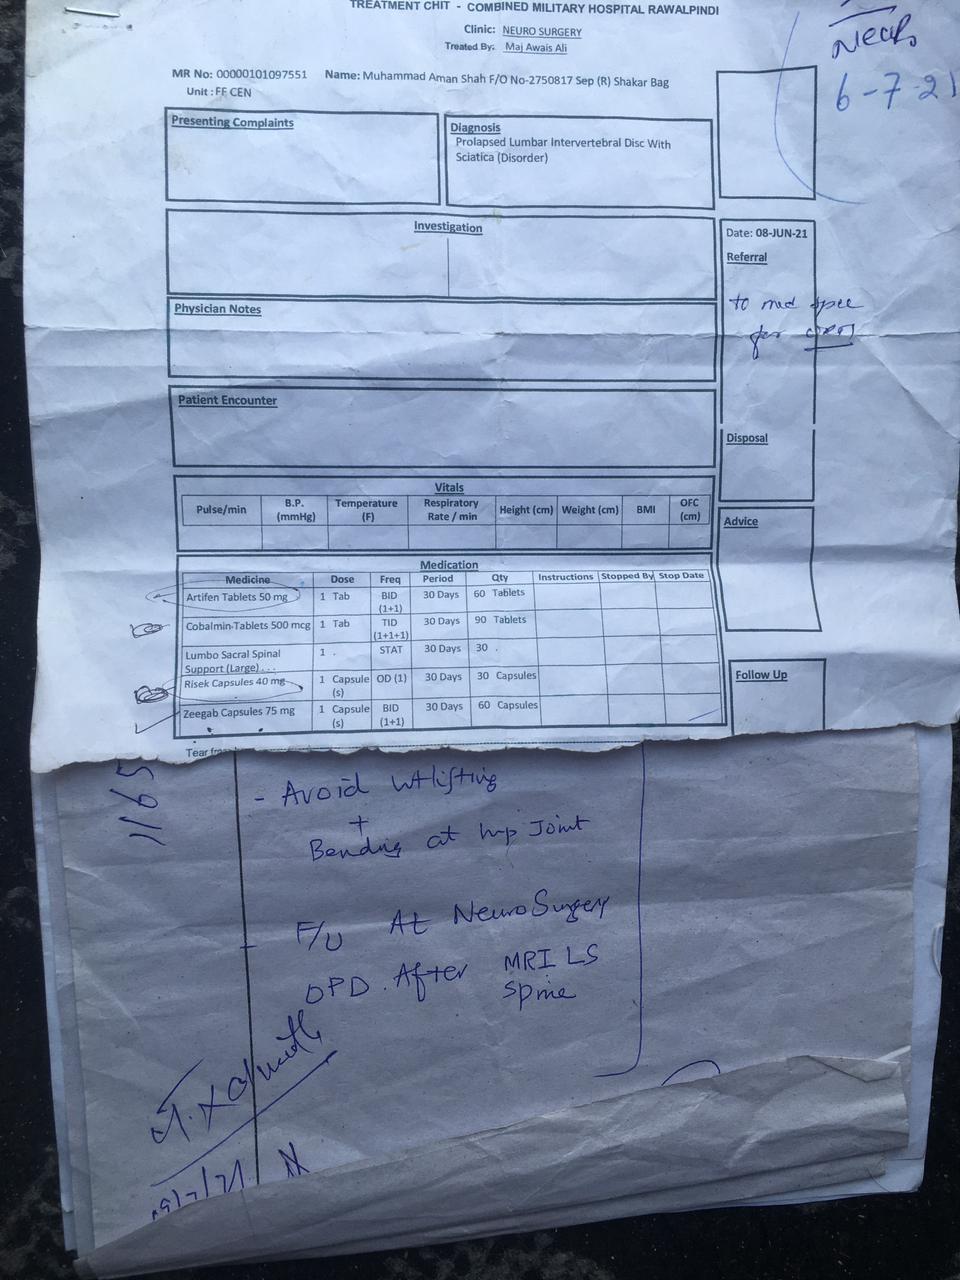 TREATMENT CHIT - COMBINED MILITARY HOSPITAL RAWALPINDI
Clinic: NEURO SURGERY
Treated By: Maj Awais Ali
6-7-21
MR No: 00000101097551 Name: Muhammad Aman Shah F/O No-2750817 Sep (R) Shakar Bag
Unit : FF CEN
Presenting Complaints
Diagnosis
Prolapsed Lumbar Intervertebral Disc With
Sciatica (Disorder)
Investigation
Date: 08-JUN-21
Referral
to med spec
for
Physician Notes
Patient Encounter
Disposal
Vitals
Pulse/min B.P. (mmHg) Temperature (F) Respiratory Rate / min Height (cm) Weight (cm) BMI OFC (cm)
Advice
Medication
Medicine Dose Freq Period Qty Instructions Stopped By Stop Date
Artifen Tablets 50 mg 1 Tab BID (1+1) 30 Days 60 Tablets
Cobalmin-Tablets 500 mcg 1 Tab TID (1+1+1) 30 Days 90 Tablets
Lumbo Sacral Spinal Support (Large)... 1 . STAT 30 Days 30 .
Risek Capsules 40 mg 1 Capsule (s) OD (1) 30 Days 30 Capsules
Zeegab Capsules 75 mg 1 Capsule (s) BID (1+1) 30 Days 60 Capsules
Follow Up
Tear
1165
- Avoid wtlifting
+
Bending at hip Joint
- F/U At NeuroSurgery
OPD. After MRI LS
Spine